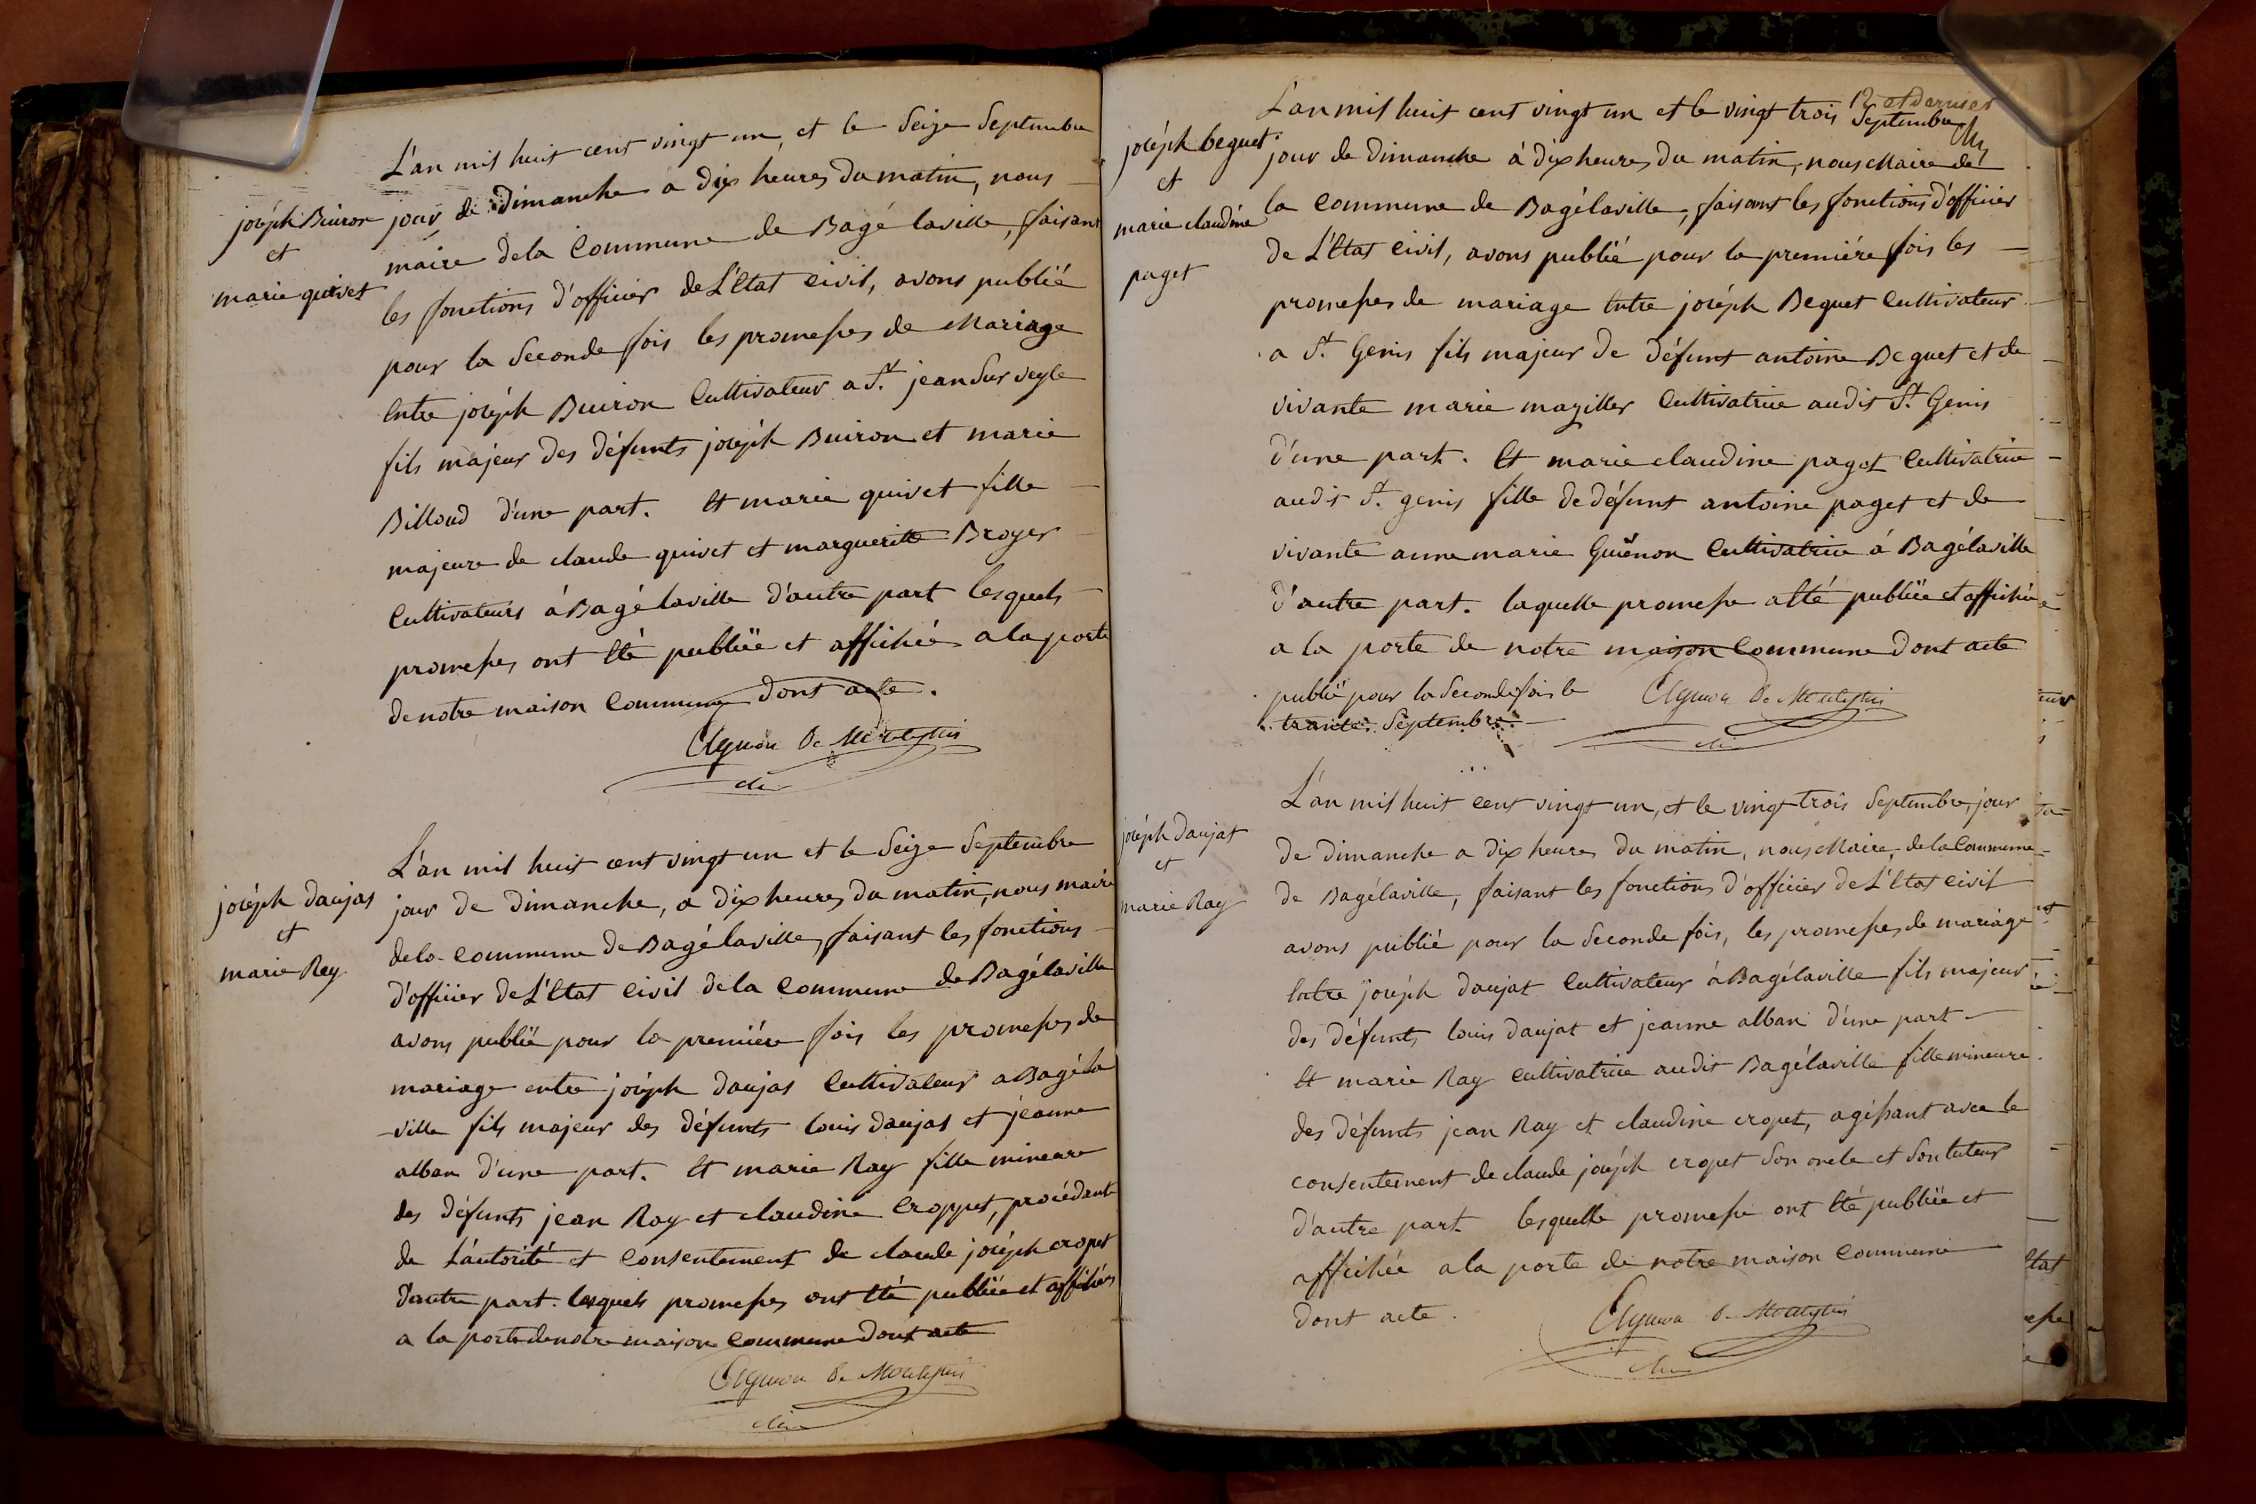 joséph Buiron
et
marie quivet
L'an mil huit cent vingt un, et le Seize Septembre
jour de Dimanche a dix heures du matin, nous
maire dela Commune de Bagé laville, faisant
les fonctions d'officier de L'Etat Civil, avons publié
pour la Seconde fois les promesses de Mariage
Entre joséph Buiron Cultivateur a St. jean Sur veyle
fils majeur des défunts joséph Buiron et marie
Billoud d'une part. Et marie quivet fille
majeure de claude quivet et marguerite Broyer
Cultivateurs á Bagé laville d'autre part lesquels
promesses ont Eté publiée et affichée a la porte
de notre maison Commune dont acte.
joséph daujat
et
marie Ray
L'an mil huit cent vingt un et le Seize Septembre
jour de Dimanche, a dix heures du matin, nous maire
dela Commune de Bagélaville, faisant les fonctions
d'officier de L'Etat Civil dela Commune de Bagélaville
avons publié pour la premiére fois les promesses de
mariage entre joséph daujat Cultivateur a Bagéla
-ville fils majeur des défunts louis daujat et jeanne
alban d'une part. Et marie Ray fille mineure
des défunts jean Ray et claudine Croppet, procédant
de L'autorité et Consentement de claude joséph cropet
d'autre part. lesquels promesses ont Eté publiée et affichées
a la porte de notre maison Commune dont acte
12 et dernier
joséph beguet
et
marie claudine
paget
L'an mil huit cent vingt un et le vingt trois Septembre
jour de Dimanche á dix heures du matin, nous Maire de
la Commune de Bagélaville, faisant les fonctions d'officier
de L'Etat Civil, avons publié pour la premiére fois les
promesses de mariage Entre joséph Beguet Cultivateur
a St. Genis fils majeur de défunt antoine Beguet et de
vivante marie maziller Cultivatrice audit St. Genis
d'une part. Et marie claudine paget Cultivatrice
audit St. genis fille de défunt antoine paget et de
vivante anne marie Guénon Cultivatrice á Bagélaville
d'autre part. laquelle promesse a Eté publiée et affichée
a la porte de notre maison Commune dont acte
publié pour la Seconde fois le
trante Septembre
joséph daujat
et
marie Ray
L'an mil huit cent vingt un, et le vingt trois Septembre, jour
de Dimanche a dix heures du matin, nous Maire, de la Commune
de Bagélaville, faisant les fonctions d'officier de L'Etat Civil
avons publié pour la Seconde fois, les promesses de mariage
Entre joséph daujat Cultivateur á Bagélaville fils majeur
des défunts louis daujat et jeanne alban d'une part
Et marie Ray Cultivatrice audit Bagélaville fille mineure
des défunts jean Ray et claudine cropet, agissant avec le
consentement de claude joséph cropet Son oncle et Son tuteur
d'autre part lesquelle promesse ont Eté publiée et
affichée a la porte de notre maison Commune
dont acte.